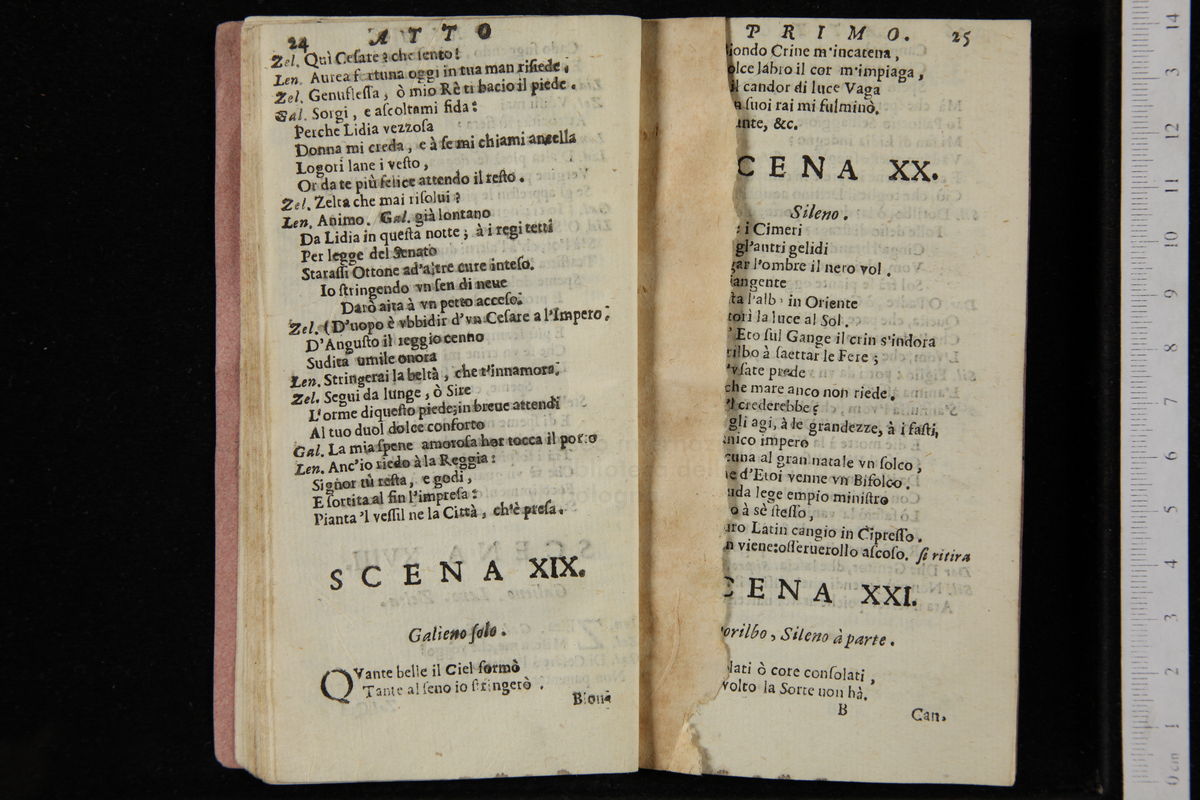 24 ATTO
Zel. Quì Cesare? che sento!
Len. Aurea fortuna oggi in tua man risiede.
Zel. Genuflessa, ò mio Rè ti bacio il piede.
Gal. Sorgi, e ascoltami fida:
Perche Lidia vezzosa
Donna mi creda, e à se mi chiami ancella
Logori lane i vesto,
Or da te più felice attendo il resto.
Zel. Zelta che mai risolui?
Len. Animo. Gal. già lontano
Da Lidia in questa notte; à i regi tetti
Per legge del Senato
Starassi Ottone ad'altre cure inteso.
Io stringendo vn sen di neue
Darò aita à vn petto acceso.
Zel. (D'uopo è vbbidir d'vn Cesare a l'Impero.
D'Augusto il reggio cenno
Sudita umile onora
Len. Stringerai la beltà, che t'innamora.
Zel. Segui da lunge, ò Sire
L'orme di questo piede; in breue attendi
Al tuo duol dolce conforto
Gal. La mia spene amorosa hor tocca il porto
Len. Anc'io riedo à la Reggia:
Signor tù resta, e godi,
E sortita al fin l'impresa:
Pianta 'l vessil ne la Città, ch'è presa.
SCENA XIX.
Galieno solo.
QVante belle il Ciel formò
Tante al seno io stringerò.
Bion-
PRIMO. 25
iondo Crine m'incatena,
olce labro il cor m'impiaga,
il candor di luce Vaga
suoi rai mi fulminò.
ante, &c.
CENA XX.
Sileno.
i Cimeri
gl'antri gelidi
gar l'ombre il nero vol.
iangente
ta l'alba in Oriente
torì la luce al Sol.
Eto sul Gange il crin s'indora
rilbo à saettar le Fere;
vsate prede
che mare anco non riede.
'l crederebbe?
gli agi, à le grandezze, à i fasti,
nico impero
cuna al gran natale vn solco,
e d'Eroi venne vn Bifolco.
uda lege empio ministro
o à sè stesso,
uro Latin cangio in Cipresso.
n viene: osseruerollo ascoso. si ritira
CENA XXI.
orilbo, Sileno à parte.
lati ò core consolati,
volto la Sorte non hà.
B
Can-
14
13
12
11
10
9
8
7
6
5
4
3
2
1
0 cm